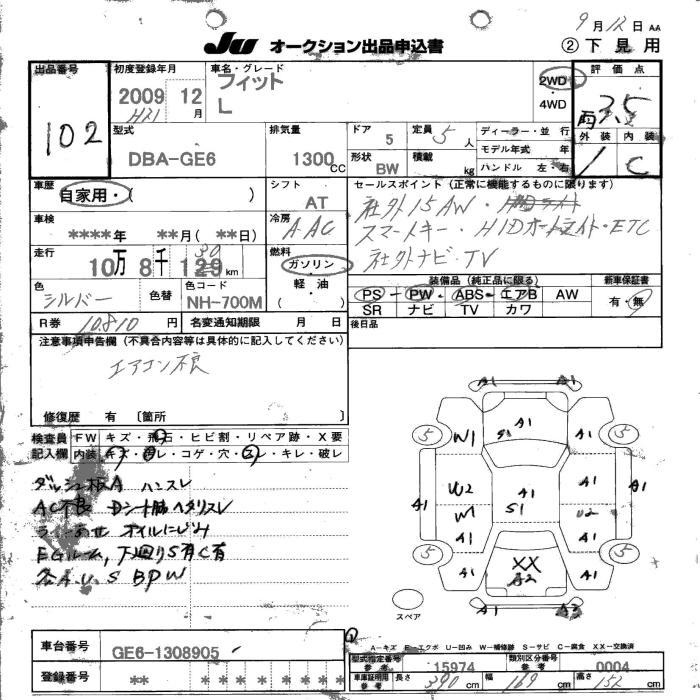 9月12日 AA
JU オークション出品申込書
② 下見用
出品番号
102
初度登録年月
2009 12月
H21
車名・グレード
フィット
L
2WD
4WD
評価点
3.5
外装 内装
C
型式
DBA-GE6
排気量
1300cc
ドア
5
定員
5人
形状
BW
積載
kg
ディーラー・並行
モデル年式 年
ハンドル 左・右
車歴
自家用・( )
シフト
AT
車検
****年 **月(**日)
冷房
AAC
走行
10万8千129km
30
燃料
ガソリン
軽油
( )
色
シルバー
色替
色コード
NH-700M
R券 10.810円 名変通知期限 月 日
セールスポイント(正常に機能するものに限ります)
社外15AW・
スマートキー・HIDオートライト・ETC
社外ナビ・TV
装備品(純正品に限る)
PS PW ABS エアB AW
SR ナビ TV カワ
新車保証書
有・無
後日品
注意事項申告欄(不具合内容等は具体的に記入してください)
エアコン不良
修復歴 有 〔箇所 〕
検査員 FW キズ・飛石・ヒビ割・リペア跡・X要
記入欄 内装 キズ・ヨゴレ・コゲ・穴・スレ・キレ・破レ
ダッシュ板A ハンスレ
AC不良 Dシート脇ヘタリスレ
オイルにじみ
EGルーム,下廻りS有C有
各A.U.S BPW
A1 A1
5 A1 5
W1 S1 A1
W2 A1 A1
A1 W1 S1 U2 A1
5 XX 5
A1 A2 A1 A1
A1 A2
スペア
A-キズ E-エクボ U-凹み W-補修跡 S-サビ C-腐食 XX-交換済
車台番号
GE6-1308905
登録番号
** * * * * * *
型式指定番号 参考
15974
類別区分番号 参考
0004
車庫証明用 参考
長さ 390cm 幅 169cm 高さ 152cm